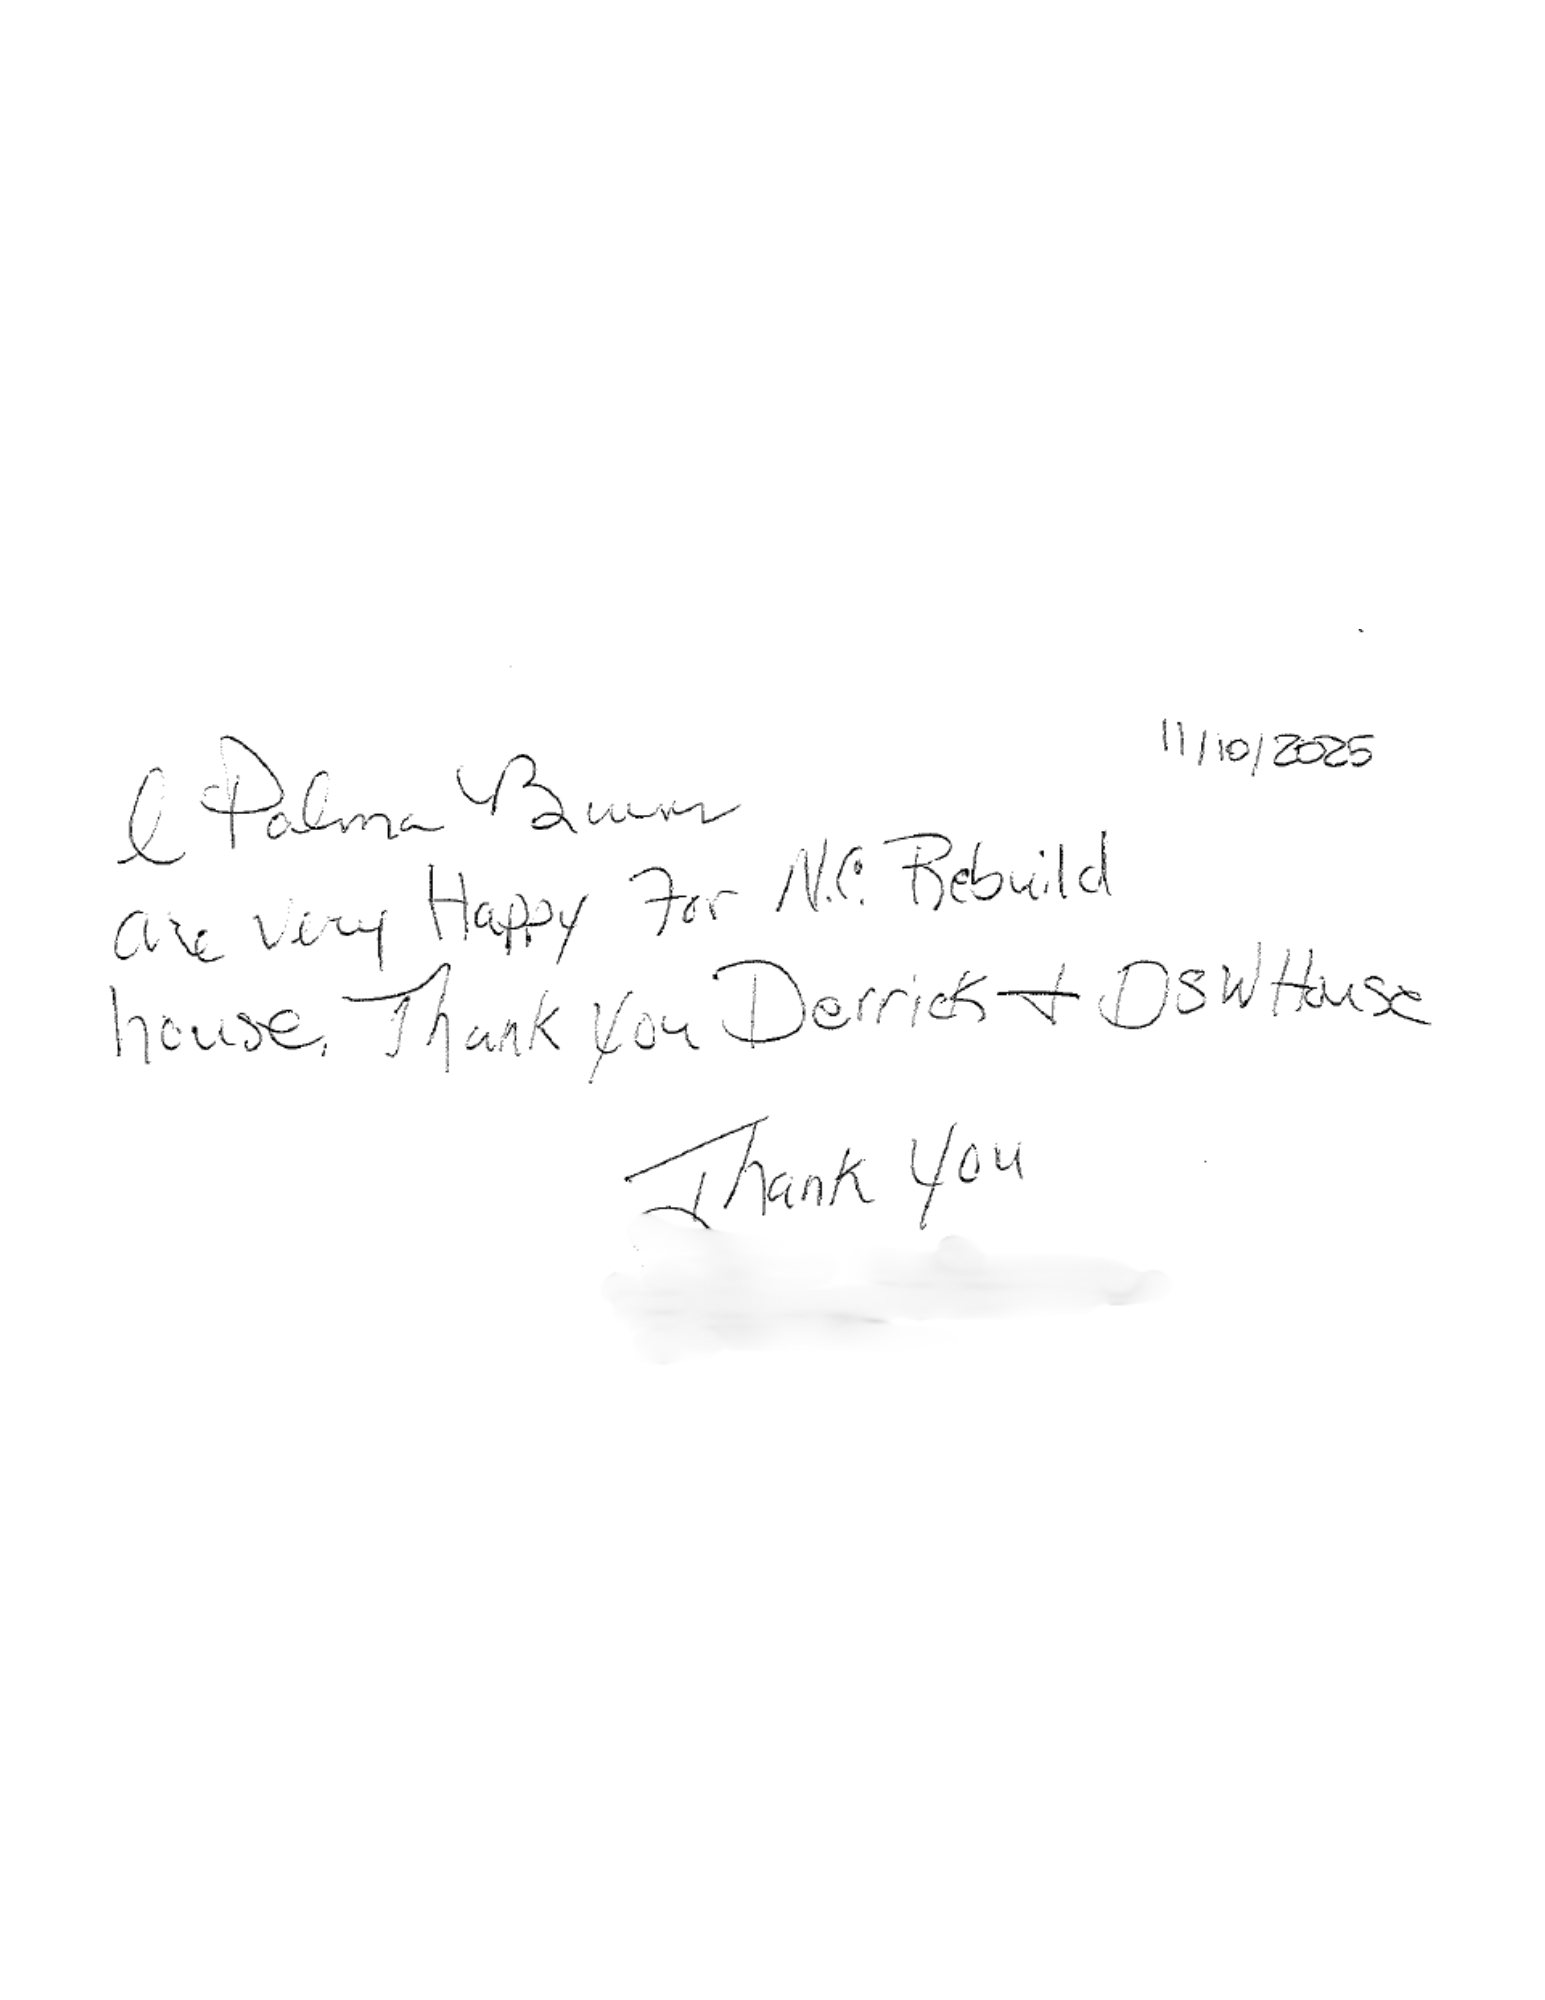 11/10/2025
I Palma
are very Happy For N.C. Rebuild
house. Thank You Derrick + DSW House
Thank You